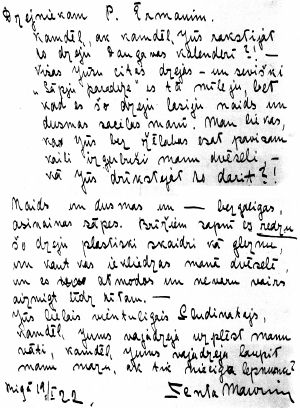 Dzejniekam P. Ērmanim.
Kamdēļ, ak kamdēļ Jūs rakstījāt
to dzeju Daugavas kalendērī?! –
Visas Jūsu citas dzejas – un sevišķi
es tā mīlēju, bet
kad es šo dzeju lasīju naids un
dusmas sacēlās manī. Man liekas,
kad Jūs bez žēlabas esat pavisam
kailu izģērbuši manu dvēseli, –
kā Jūs drīkstējāt to darīt?!
Naids un dusmas un – bezgalīgas,
asinainas sāpes. Brīžiem sapnī es redzu
šo dzeju plastiski skaidri kā gleznu,
un kaut kas iekliedzas manā dvēselē
un es atmodos un nevaru vairs
aizmigt līdz rītam. –
Jūs lielais vientulīgais Sludinātājs,
kamdēļ Jums vajadzēja uzplēst manu
vāti, kamdēļ Jums vajadzēja laupīt
manu mazo, lepnumu?
Rīgā 19/I 22. Zenta Mauriņ